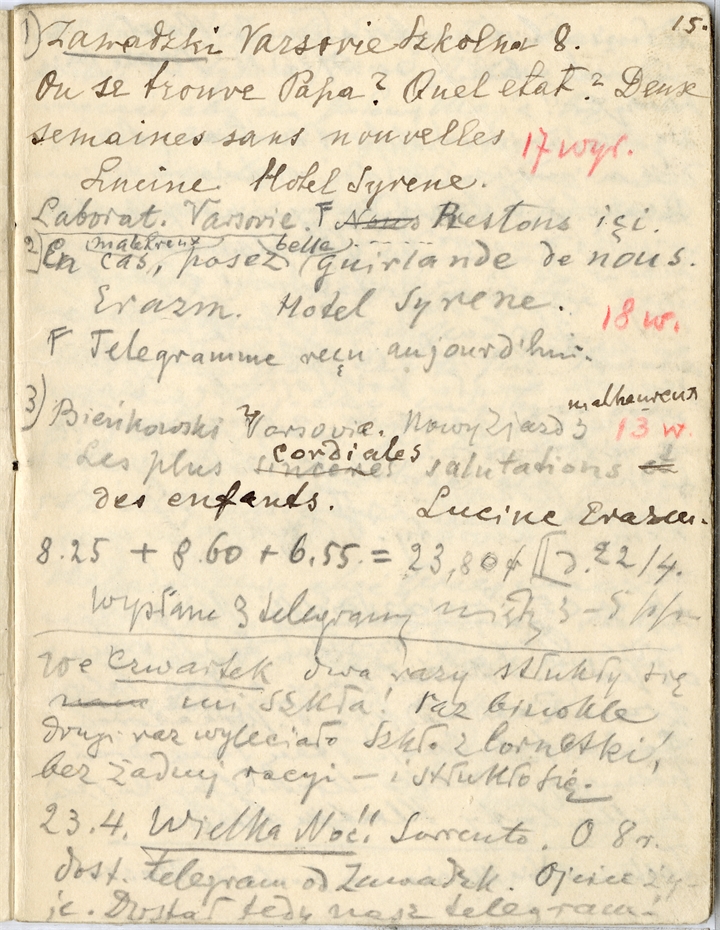 15.
1) Zawadzki Varsovie Szkolna 8.
Ou se trouve Papa? Quel etat? Deux
semaines sans nouvelles 17 wyr.
Lucine Hotel Syrene.
Laborat. Varsovie. F Nous Restons içi.
2) En malhreux cas, posez belle guirlande de nous.
Erazm. Hotel Syrene. 18 w.
F Telegramme reçu aujourd'hui.
3) Bieńkowski Varsovie. Nowy Zjazd 5 malheureux 13 w.
Les plus sinceres cordiales salutations et
des enfants. Lucine Erazm.
8.25 + 8.60 + 6.55. = 23,80 d. 22/4.
wysłane 3 telegramy między 3–5 pp.
We czwartek dwa razy stłukły się
nam mi szkła! raz binokle
drugi raz wyleciało szkło z lornetki!
bez żadnej racyi – i stłukło się.
23.4. Wielka Noc!! Sorrento. O 8 r.
dost. telegram od Zawadzk. Ojciec ży-
je. Dostał tedy nasz telegram!